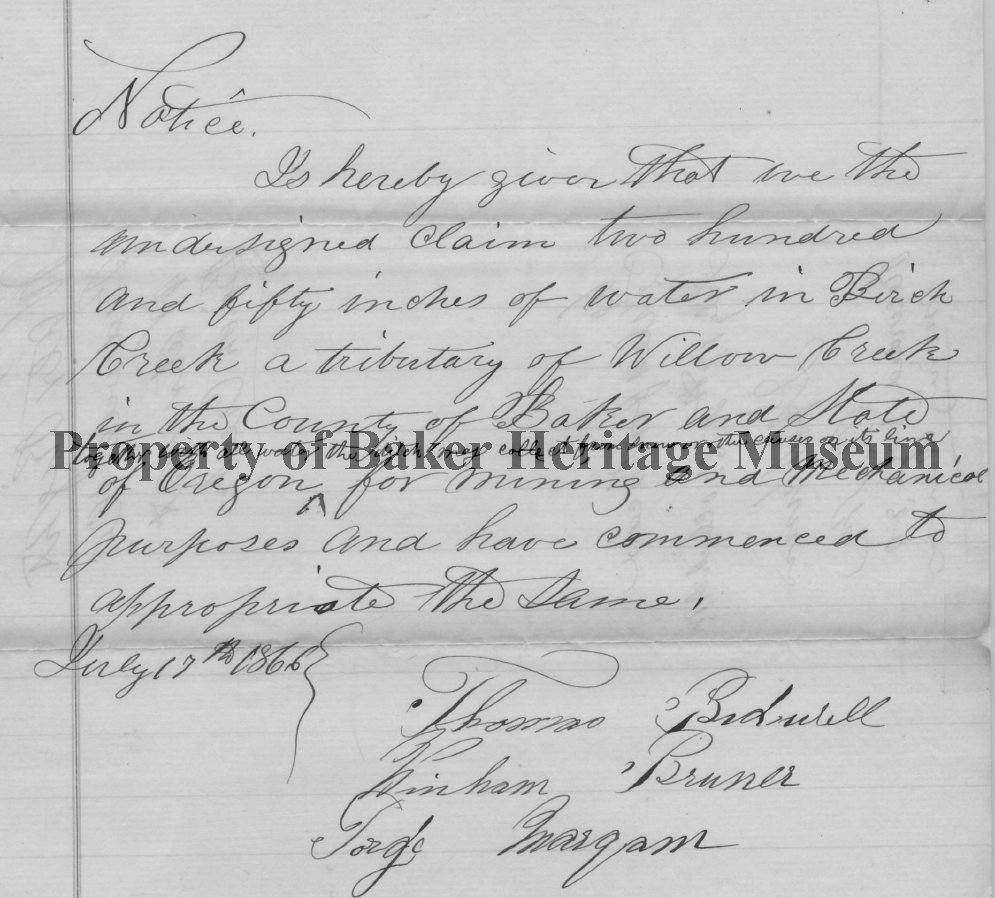 Notice.
Is hereby given that we the
undersigned claim two hundred
and fifty inches of water in Birch
Creek a tributary of Willow Creek
in the County of Baker and State
together with all water the ditch may collect from snow or other causes on its line
Property of Baker Heritage Museum
of Oregon ^ for mining and Mechanical
purposes and have commenced to
appropriate the same.
July 17th 1866
Thomas Bidwell
Bruner
Margam